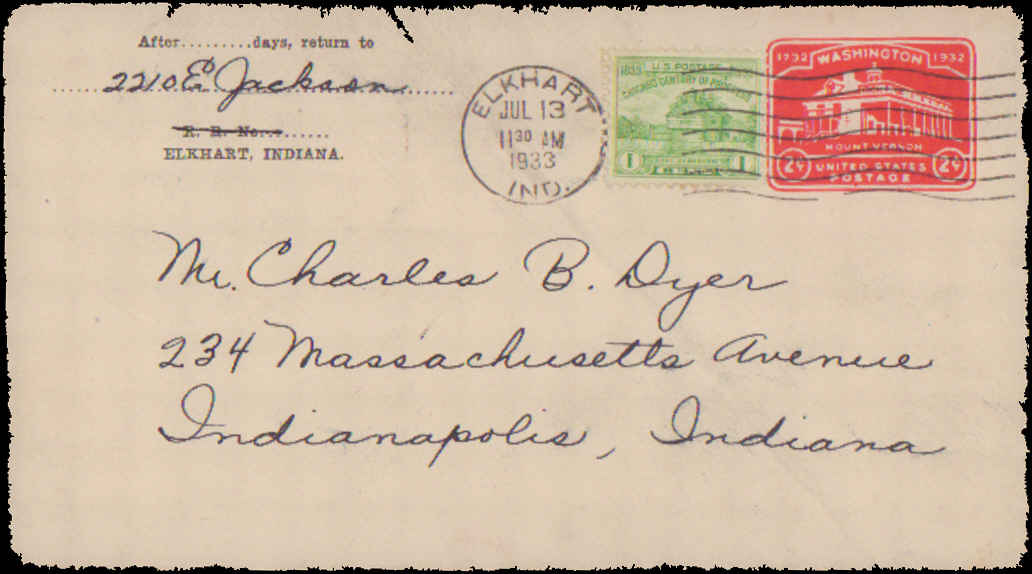 After.........days, return to
2210 E. Jackson
R. R. No.
ELKHART, INDIANA.
ELKHART
JUL 13
11 30 AM
1933
IND.
1833 U.S. POSTAGE
CHICAGO CENTURY OF PROGRESS
1 1
1732 WASHINGTON 1932
MOUNT VERNON
2¢ UNITED STATES 2¢
POSTAGE
Mr. Charles B. Dyer
234 Massachusetts Avenue
Indianapolis, Indiana